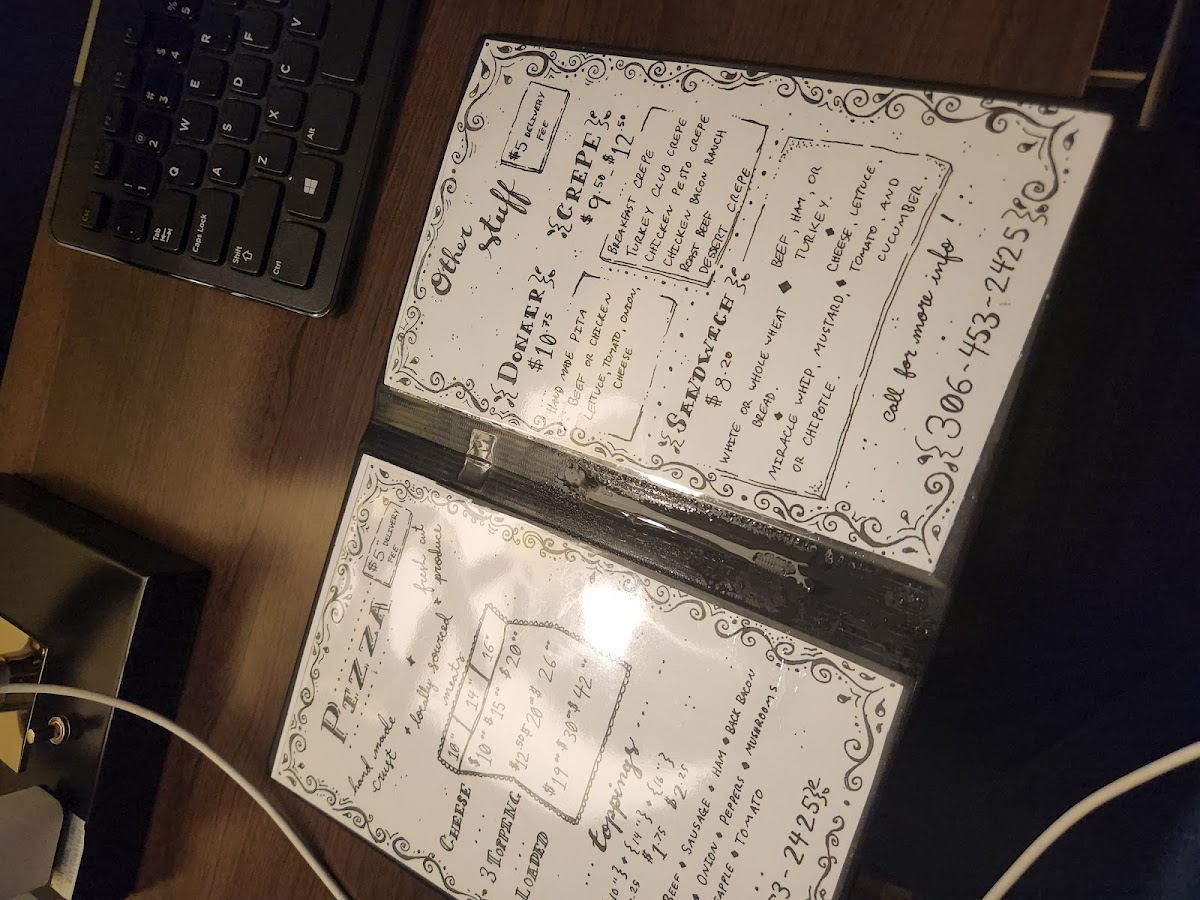 PIZZA
$5 DELIVERY
FEE
hand made
crust
locally sourced
meats
fresh cut
produce
10" 14" 16"
CHEESE $10 $15 $20
3 TOPPING $12.50 $20 $26
LOADED $19 $30 $42
toppings
10" {14"} {16"}
.25 $1.75 $2.25
BEEF ◆ SAUSAGE ◆ HAM ◆ BACK BACON
ONION ◆ PEPPERS ◆ MUSHROOMS
EAPPLE ◆ TOMATO
3-2425
Other
stuff
$5 DELIVERY
FEE
DONAIR
$10.75
HAND MADE PITA
BEEF OR CHICKEN
LETTUCE, TOMATO, ONION,
CHEESE
CREPE
$9.50-$12.50
BREAKFAST CREPE
TURKEY CLUB CREPE
CHICKEN PESTO CREPE
CHICKEN BACON RANCH
ROAST BEEF
DESSERT CREPE
SANDWICH
$8.20
WHITE OR WHOLE WHEAT ◆ BEEF, HAM, OR
BREAD TURKEY.
MIRACLE WHIP, MUSTARD, ◆ CHEESE, LETTUCE
OR CHIPOTLE. TOMATO, AND
CUCUMBER
call for more info!
{306-453-2425}
Esc
Tab
Caps Lock
Shift
Ctrl
Alt
! 1
@ 2
# 3
$ 4
% 5
Q W E R
A S D F
Z X C V